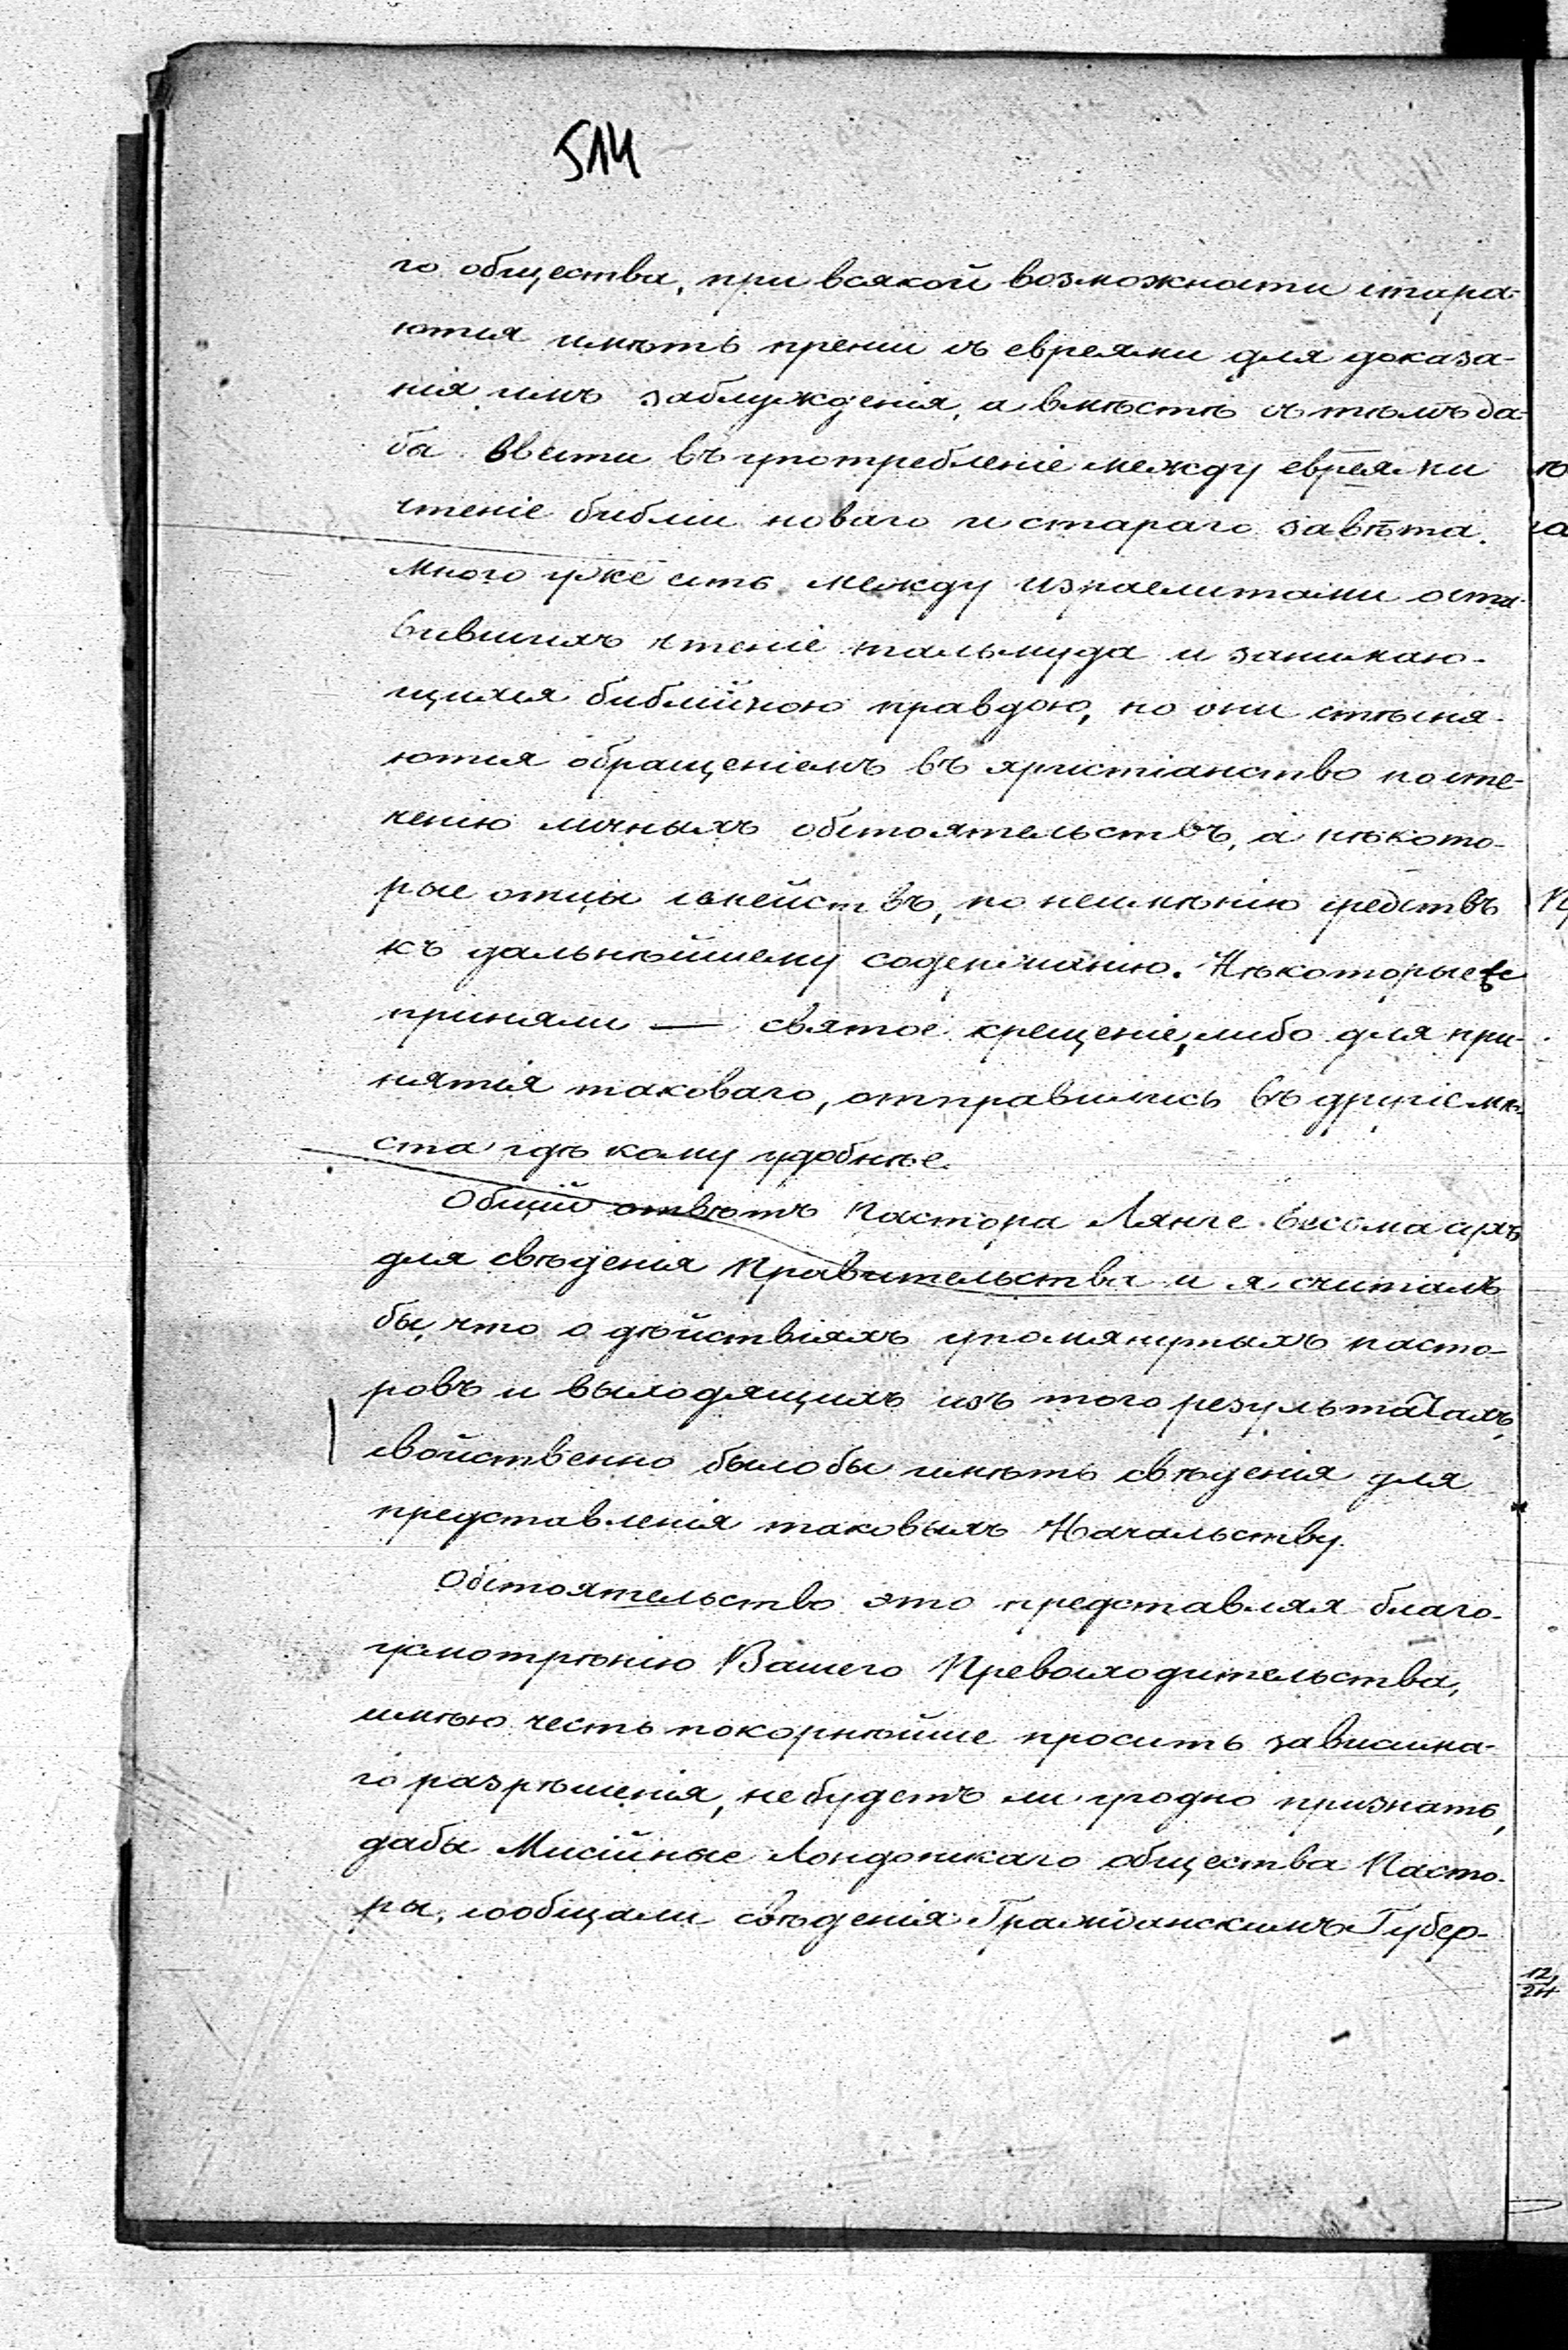 514
го общества, при всякой возможности стара-
ются имѣть пренiи съ евреями для доказа-
нія имъ заблужденія, а вмѣстѣ съ тѣмъ да-
бы ввести въ употребленіе между евреями
чтеніе библіи новаго и стараго завѣта.
Много уже есть между израелитами оста-
вившихъ чтеніе тальмуда и занимаю-
щихся библійною правдою, но они стѣсня-
ются обращеніемъ въ христіанство по сте-
ченію личныхъ обстоятельствъ, а нѣкото-
рые отцы семействъ, по неимѣнію средствъ
къ дальнѣйшему содержанію. Нѣкоторые
приняли — святое крещеніе, либо для при-
нятія таковаго, отправились въ другіе мѣ-
ста гдѣ кому удобнѣе.
Общій отвѣтъ Пастора Лянге весьма
для свѣденія Правительства и я считалъ
бы, что о дѣйствіяхъ упомянутыхъ насто-
ровъ и выходящихъ изъ того результатахъ,
свойственно было бы имѣть свѣденія для
представленія таковыхъ Начальству.
Обстоятельство это представляя благо-
усмотрѣнію Вашего Превосходительства,
имѣю честь покорнѣйше просить зависима-
го разрѣшенія, не будетъ ли угодно признать,
дабы Мисійные Лондонскаго общества Пасто-
ры, сообщали свѣденія Гражданскимъ Губер-
12/24